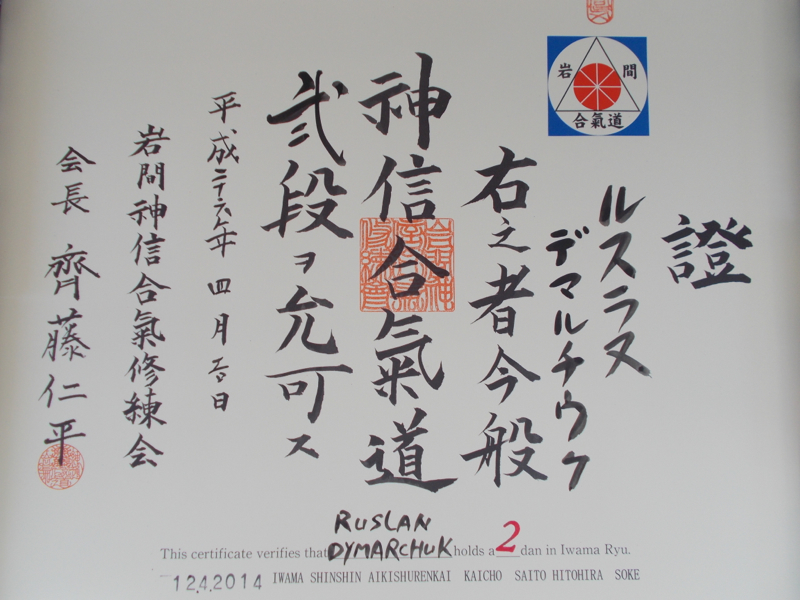 岩間
合氣道
證
ルスラヌ
デマルチウケ
右之者今般
神信合氣道
弐段ヲ允可ス
平成二十六年四月 日
岩間神信合氣修練会
会長 齊藤仁平
RUSLAN
This certificate verifies that DYMARCHUK holds a 2 dan in Iwama Ryu.
12.4.2014 IWAMA SHINSHIN AIKISHURENKAI KAICHO SAITO HITOHIRA SOKE